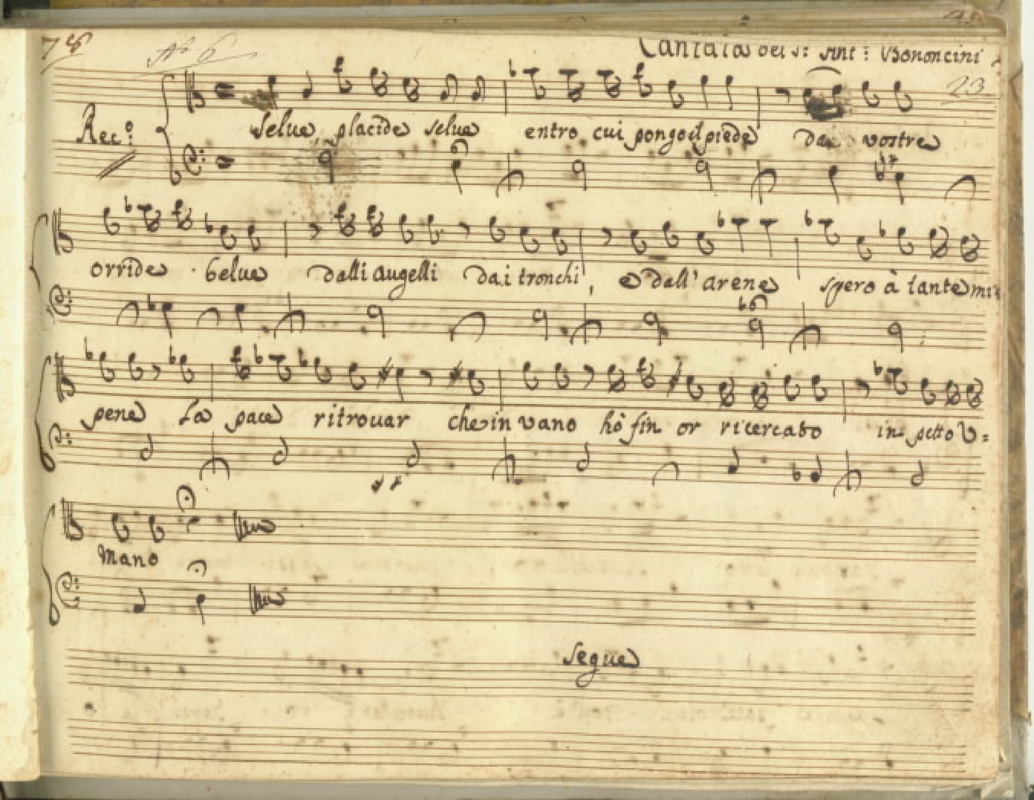 78 No 6 Cantata del Sr: Ant: Bononcini
23
Rec.o
Selue placide selue entro cui pongo il piede da vostre
orride belue dalli augelli dai tronchi, e dall' arene spero à tante mie
pene La pace ritrouar che in vano hò fin or ricercato in petto V=
mano
Segue